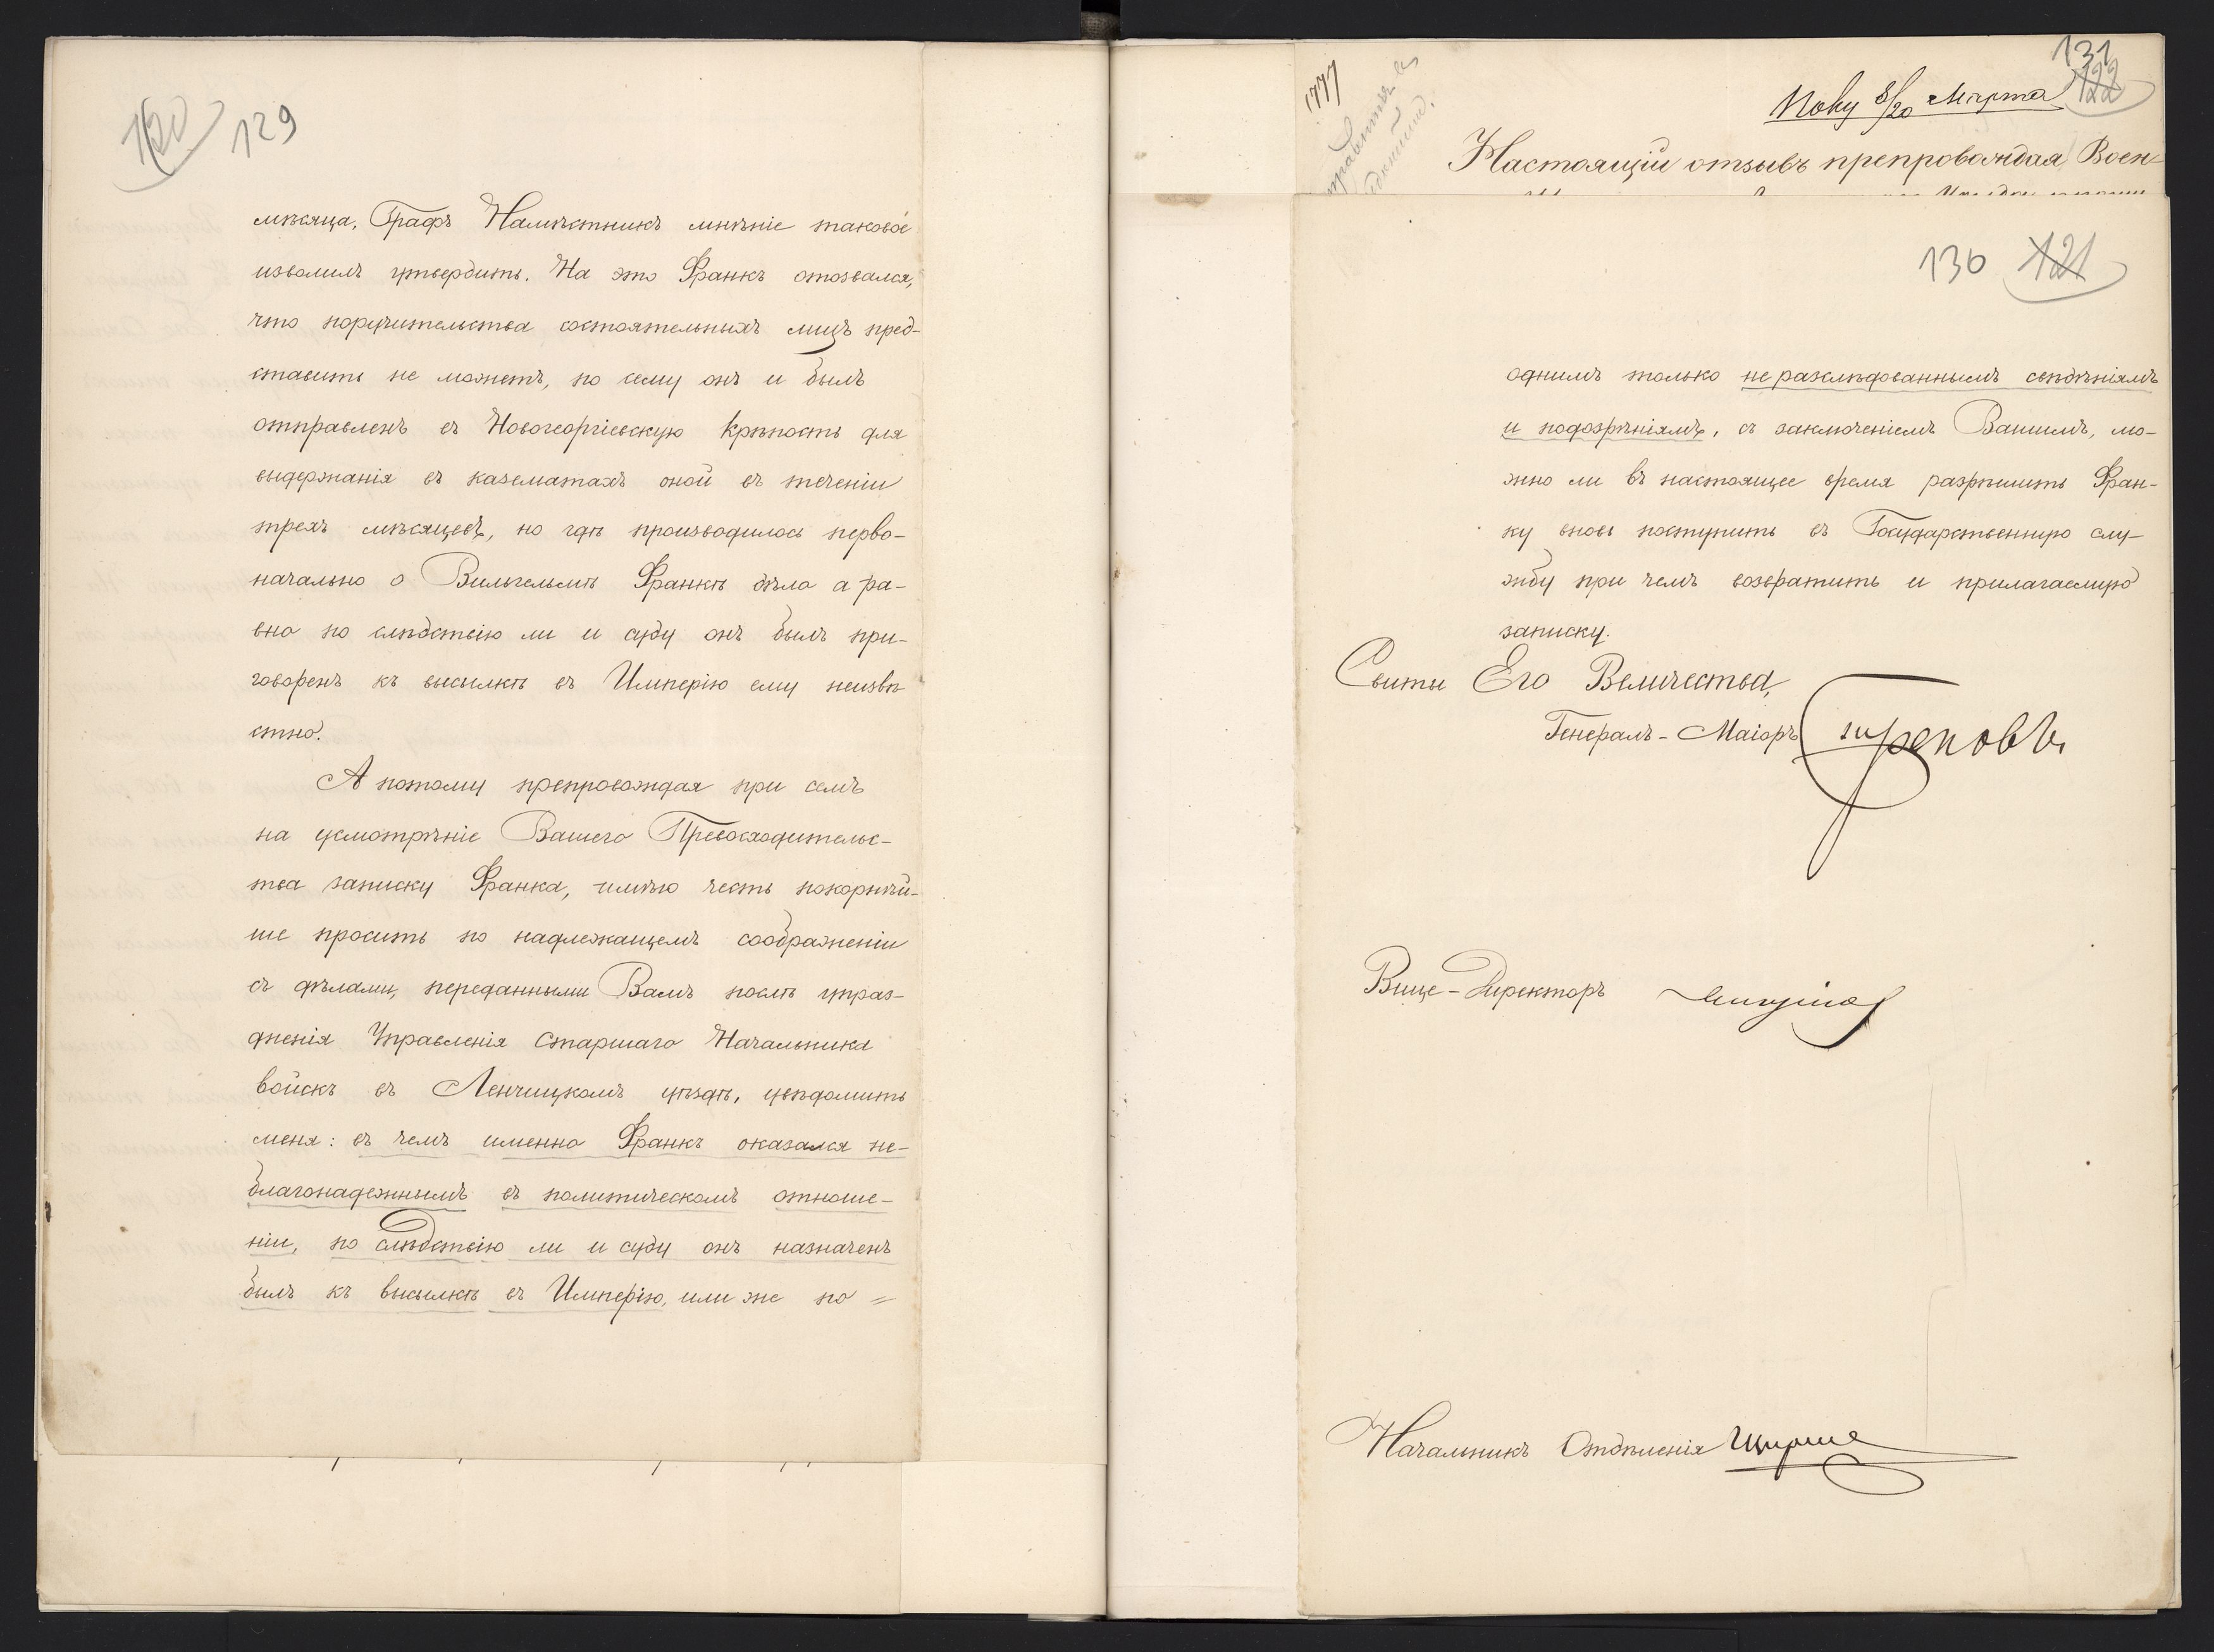 120 129
мѣсяца, Графъ Намѣстникъ мнѣніе таковое
изволилъ утвердить. На это Франкъ отозвался,
что поручительства состоятельныхъ лицъ пред-
ставить не можетъ, по сему онъ и былъ
отправленъ въ Новогеоргіевскую крѣпость для
выдержанія въ казематахъ оной въ теченіи
трехъ мѣсяцевъ, но гдѣ производилось перво-
начально о Вильгельмѣ Франкѣ дѣло а ра-
вно по слѣдствію ли и суду онъ былъ при-
говоренъ къ высылкѣ въ Имперію ему неизвѣ-
стно.
А потому препровождая при семъ
на усмотрѣніе Вашего Превосходительс-
тва записку Франка, имѣю честь покорнѣй-
ше просить по надлежащемъ соображеніи
съ дѣлами, переданными Вамъ послѣ упраз-
дненія Управленія Старшаго Начальника
войскъ въ Ленчицкомъ уѣздѣ, увѣдомить
меня: въ чемъ именно Франкъ оказался не-
благонадежнымъ въ политическомъ отноше-
ніи, по слѣдствію ли и суду онъ назначенъ
былъ къ высылкѣ въ Имперію, или же по =
131
122
1777
8/20 Марта
Настоящій отзывъ препровождая Воен-
130 121
однимъ только не разслѣдованнымъ свѣдѣніямъ
и подозрѣніямъ, съ заключеніемъ Вашимъ, мо-
жно ли въ настоящее время разрѣшить Фран-
ку вновь поступить въ Государственную слу-
жбу при чемъ возвратить и прилагаемую
записку.
Свиты Его Величества,
Генералъ-Маіоръ
Вице-Директоръ
Начальникъ Отдѣленія